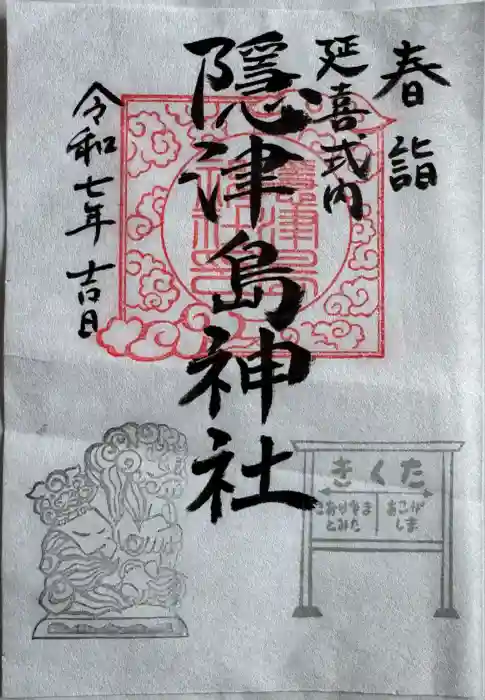 春詣
延喜式内
隠津島神社
令和七年吉日
きくた
こおりやま
とみた
おこが
しま